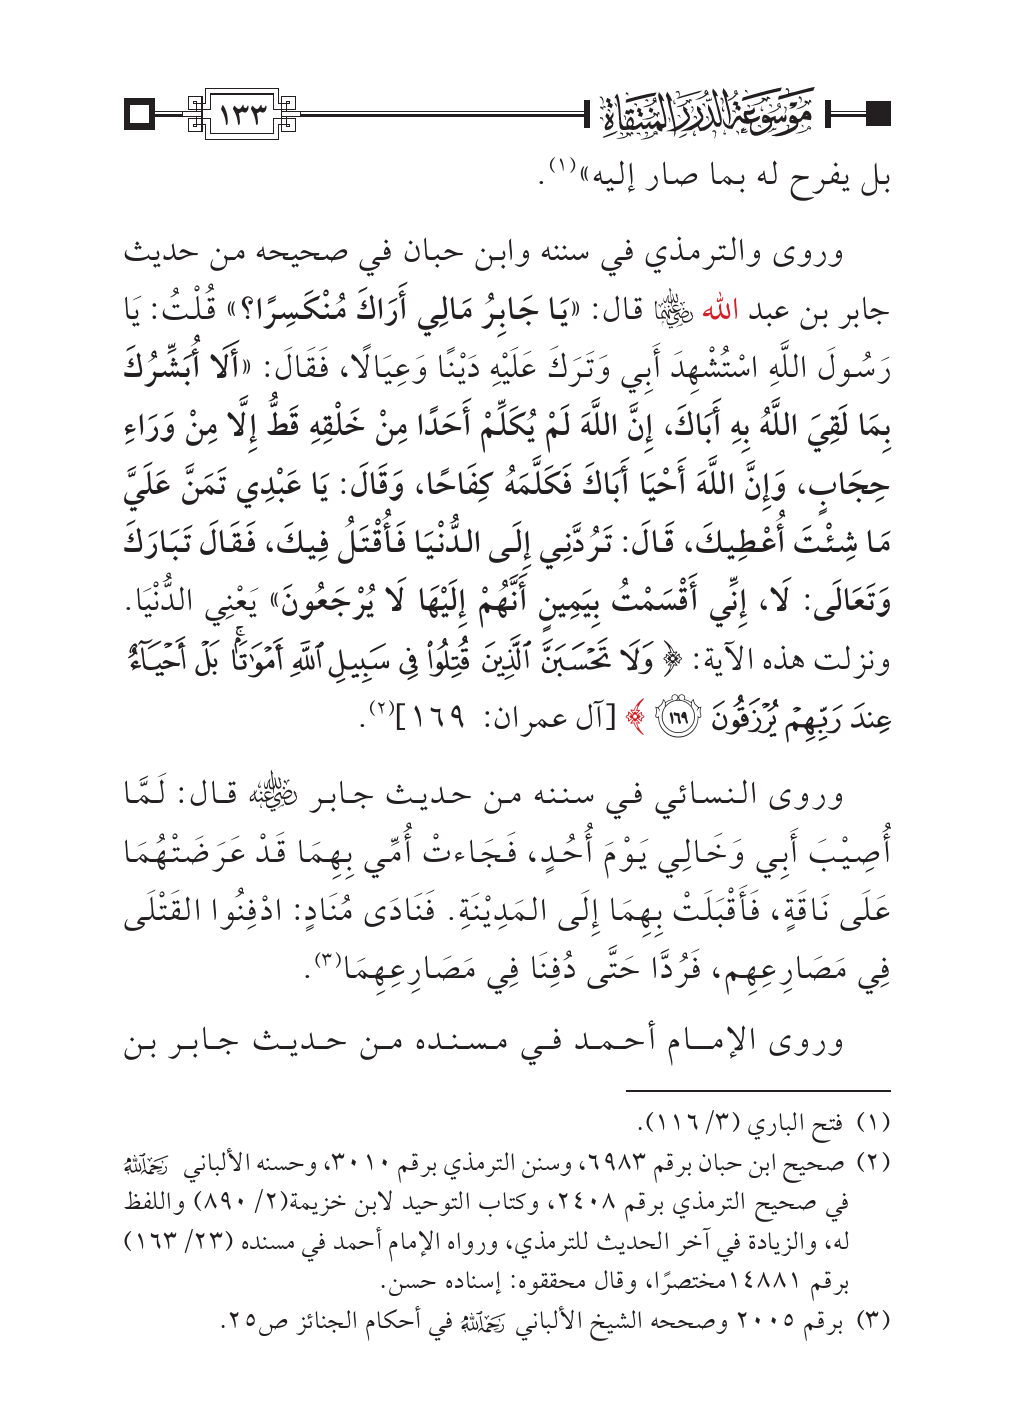 موسوعة الدرر المنتقاة
١٣٣
بل يفرح له بما صار إليه»(١).
وروى والترمذي في سننه وابن حبان في صحيحه من حديث
جابر بن عبد الله رضي الله عنهما قال: «يَا جَابِرُ مَالِي أَرَاكَ مُنْكَسِرًا؟» قُلْتُ: يَا
رَسُولَ اللَّهِ اسْتُشْهِدَ أَبِي وَتَرَكَ عَلَيْهِ دَيْنًا وَعِيَالًا، فَقَالَ: «أَلَا أُبَشِّرُكَ
بِمَا لَقِيَ اللَّهُ بِهِ أَبَاكَ، إِنَّ اللَّهَ لَمْ يُكَلِّمْ أَحَدًا مِنْ خَلْقِهِ قَطُّ إِلَّا مِنْ وَرَاءِ
حِجَابٍ، وَإِنَّ اللَّهَ أَحْيَا أَبَاكَ فَكَلَّمَهُ كِفَاحًا، وَقَالَ: يَا عَبْدِي تَمَنَّ عَلَيَّ
مَا شِئْتَ أُعْطِيكَ، قَالَ: تَرُدَّنِي إِلَى الدُّنْيَا فَأُقْتَلُ فِيكَ، فَقَالَ تَبَارَكَ
وَتَعَالَى: لَا، إِنِّي أَقْسَمْتُ بِيَمِينٍ أَنَّهُمْ إِلَيْهَا لَا يُرْجَعُونَ» يَعْنِي الدُّنْيَا.
ونزلت هذه الآية: ﴿ وَلَا تَحْسَبَنَّ ٱلَّذِينَ قُتِلُوا۟ فِى سَبِيلِ ٱللَّهِ أَمْوَٰتًۢا ۚ بَلْ أَحْيَآءٌ
عِندَ رَبِّهِمْ يُرْزَقُونَ ١٦٩ ﴾ [آل عمران: ١٦٩](٢).
وروى النسائي في سننه من حديث جابر رضي الله عنه قال: لَمَّا
أُصِيْبَ أَبِي وَخَالِي يَوْمَ أُحُدٍ، فَجَاءتْ أُمِّي بِهِمَا قَدْ عَرَضَتْهُمَا
عَلَى نَاقَةٍ، فَأَقْبَلَتْ بِهِمَا إِلَى المَدِيْنَةِ. فَنَادَى مُنَادٍ: ادْفِنُوا القَتْلَى
فِي مَصَارِعِهِم، فَرُدَّا حَتَّى دُفِنَا فِي مَصَارِعِهِمَا(٣).
وروى الإمام أحمد في مسنده من حديث جابر بن
(١) فتح الباري (٣/ ١١٦).
(٢) صحيح ابن حبان برقم ٦٩٨٣، وسنن الترمذي برقم ٣٠١٠، وحسنه الألباني رحمه الله
في صحيح الترمذي برقم ٢٤٠٨، وكتاب التوحيد لابن خزيمة(٢/ ٨٩٠) واللفظ
له، والزيادة في آخر الحديث للترمذي، ورواه الإمام أحمد في مسنده (٢٣/ ١٦٣)
برقم ١٤٨٨١مختصرًا، وقال محققوه: إسناده حسن.
(٣) برقم ٢٠٠٥ وصححه الشيخ الألباني رحمه الله في أحكام الجنائز ص٢٥.